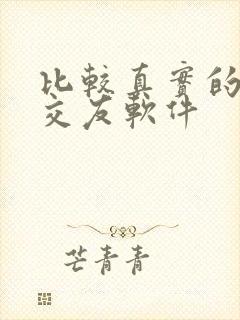 比較真實的
交友軟件
芒青青